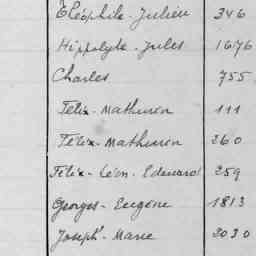 Théophile-Julien 346
Hippolyte-Jules 1676
Charles 755
Félix-Mathurin 111
Félix-Mathurin 260
Félix-Léon-Edouard 259
Georges-Eugène 1813
Joseph-Marie 2030